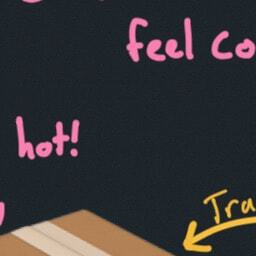 feel co
hot!
Tra